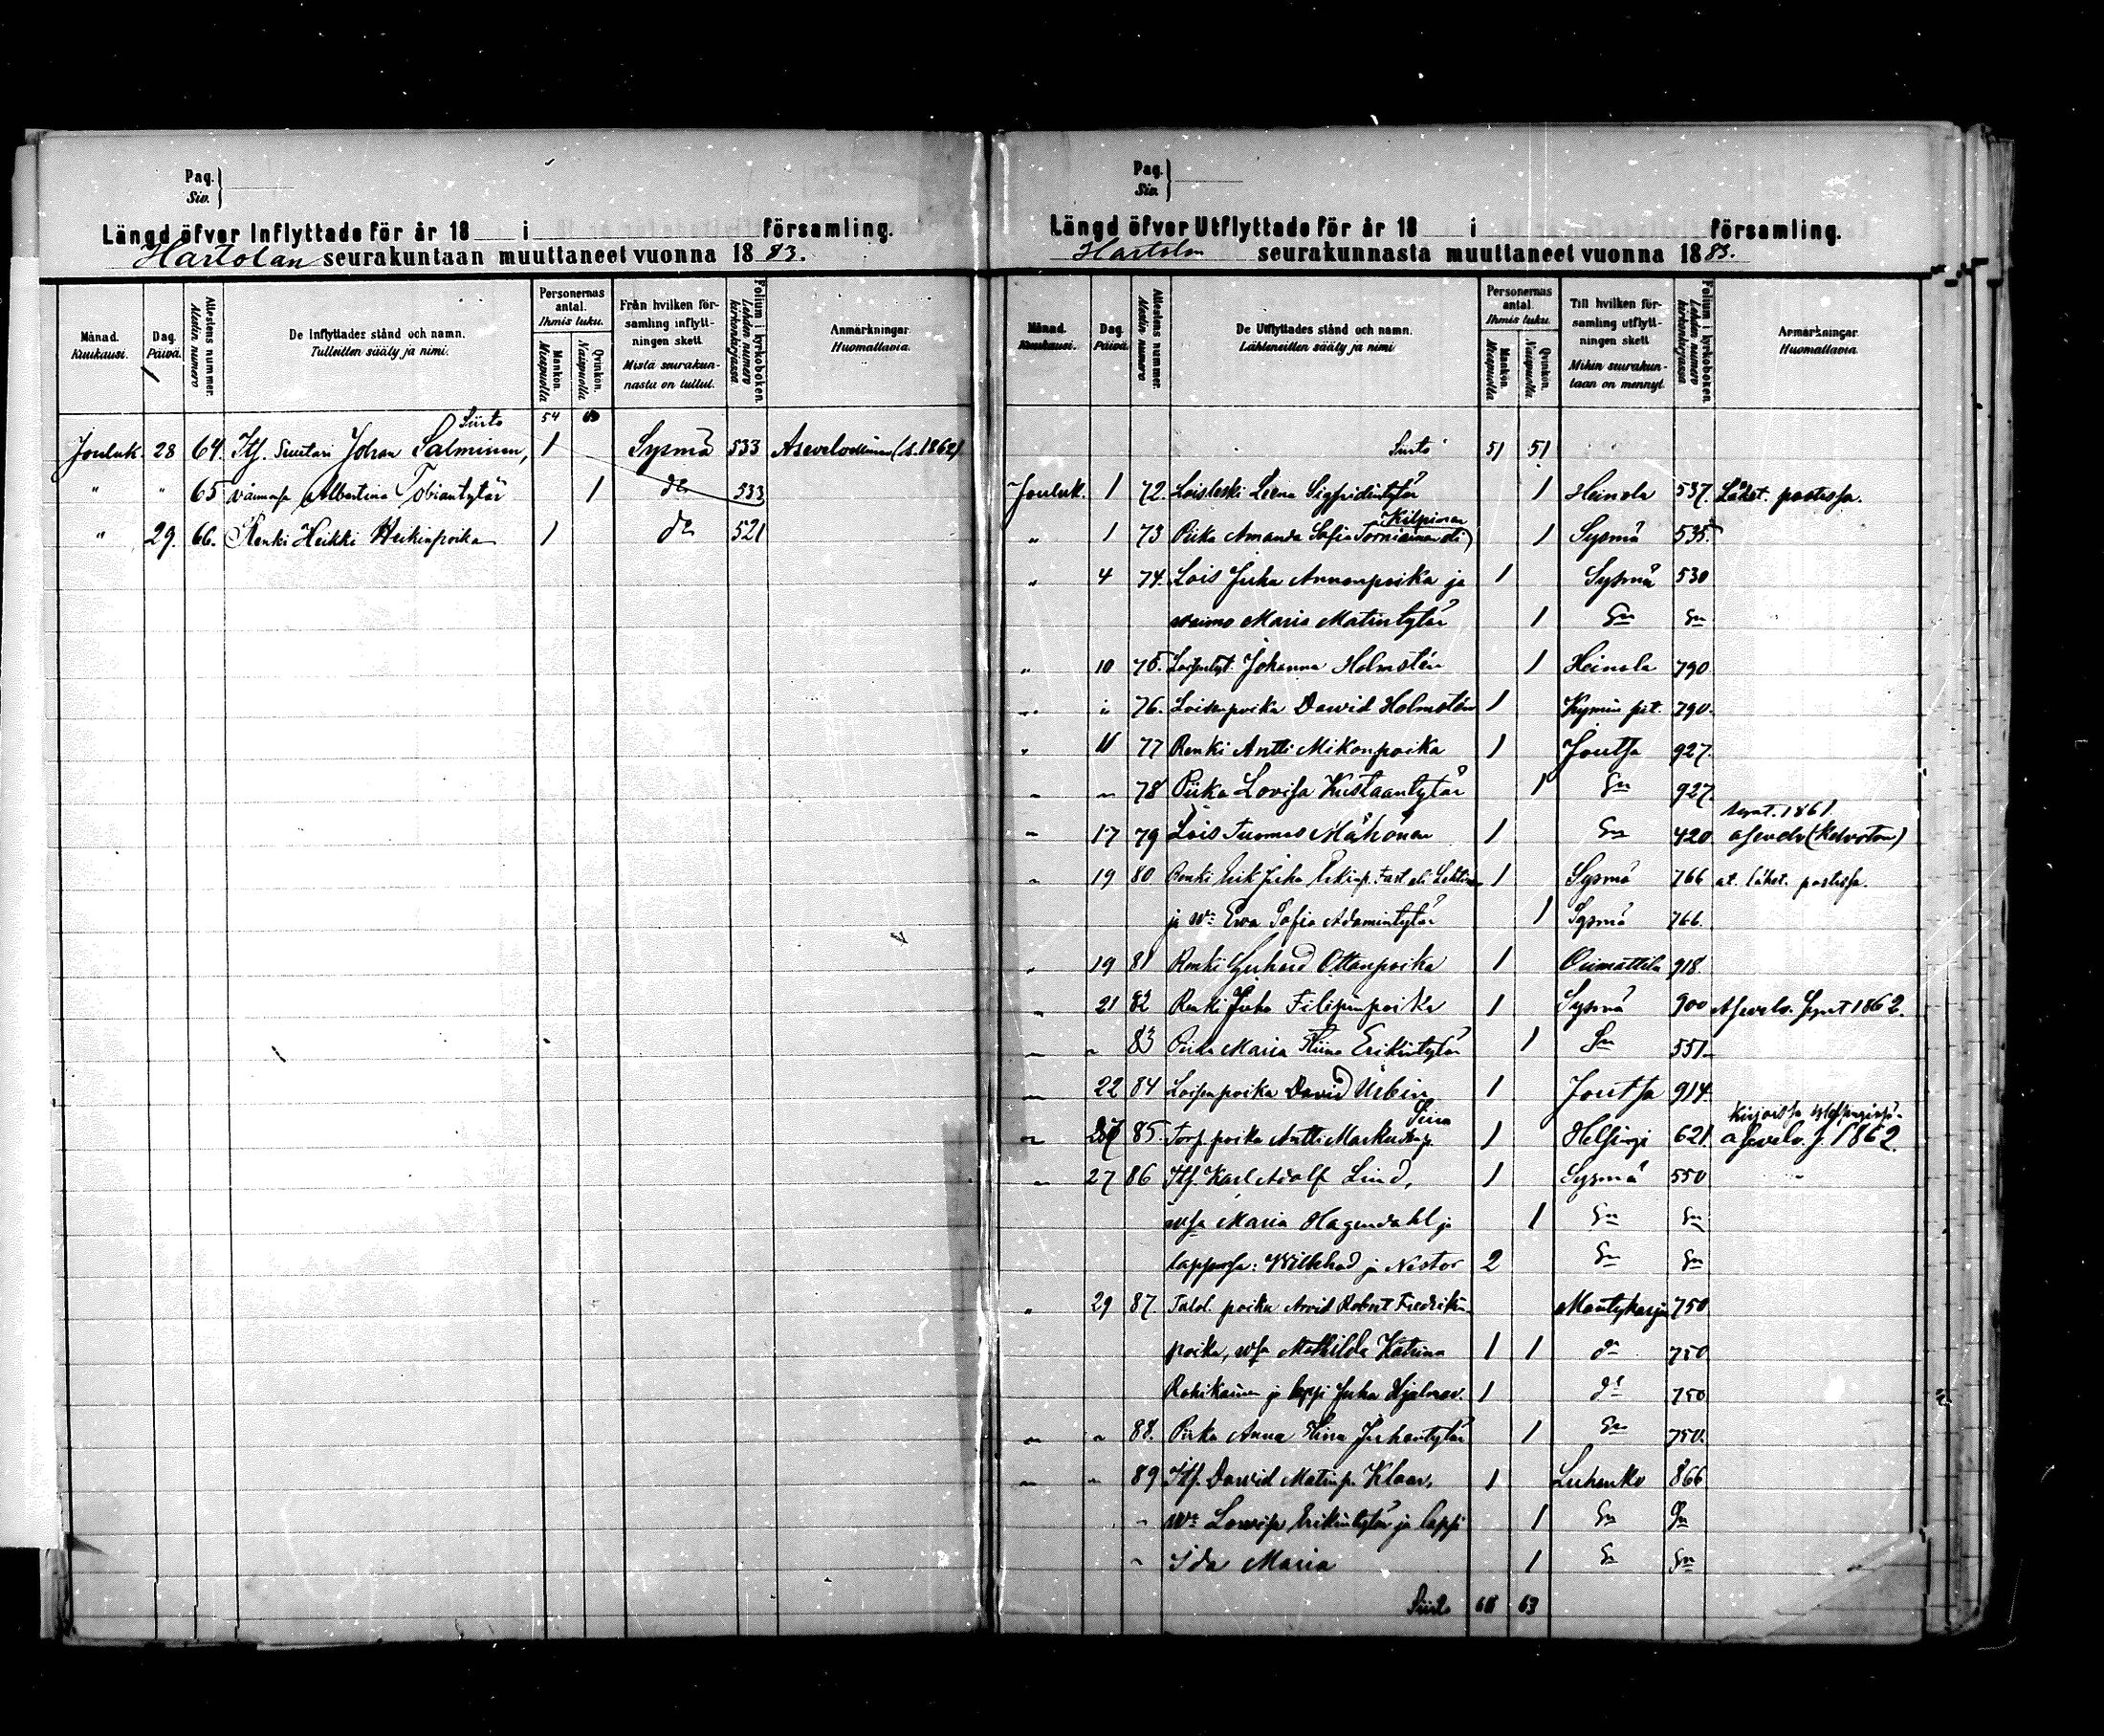 Pag.
Siv.
Längd öfver Inflyttade för år 18 i församling.
Hartolan seurakuntaan muuttaneet vuonna 1883.
Månad. Kuukausi.
Dag. Päivä.
Attestens nummer. Atestin numero
De Inflyttades stånd och namn. Tulleitten sääty ja nimi.
Personernas antal. Ihmis luku.
Mankön. Miespuolia
Qvinkön. Naispuolia
Från hvilken församling inflyttningen skett
Mistä seurakunnasta on tullut.
Folium i kyrkoboken. Lehden numero kirkonkirjassa
Anmärkningar. Huomattavia.
Siirto 54
Jouluk. 28 64. Itf. Johan Salminen, 1 Sysmä 533 Asevelvollinen (s. 1862)
" " 65 Albertina Tobiantytär 1 do 533
" 29. 66. Renki Heikki Heikinpoika 1 do 521
Pag.
Siv.
Längd öfver Utflyttade för år 18 i församling.
Hartolan seurakunnasta muuttaneet vuonna 1883.
Månad. Kuukausi.
Dag. Päivä.
Attestens nummer. Atestin numero
De Utflyttades stånd och namn. Lähteneitten sääty ja nimi
Personernas antal. Ihmis luku.
Mankön. Miespuolia
Qvinkön. Naispuolia
Till hvilken församling utflyttningen skett
Mihin seurakuntaan on mennyt.
Folium i kyrkoboken. Lehden numero kirkonkirjassa
Anmärkningar. Huomattavia
Siirto 51 51
Jouluk. 1 72. Loisleski Leena Sigfridintytär 1 Heinola 537. Lähet. postissa.
Kilpinen
" 1 73 Piika Amanda Sofia Torniainen eli) 1 Sysmä 535.
" 4 74. Lois Juha Annanpoika ja 1 Sysmä 530
waimo Maria Matintytär 1 Dn Dn
" 10 75. Johanna Holmstén 1 Heinola 790.
" " 76. Loisenpoika Dawid Holmstén 1 Kymin pit. 790.
" 11 77 Renki Antti Mikonpoika 1 Joutsa 927.
" " 78 Piika Lovisa Kustaantytär 1 Dn 927.
synt. 1861
" 17 79 Lois Tuomas Mähönen 1 Dn 420. asevelv (kelvoton)
" 19 80 Renki Erik Juha Erkinp. Fast eli Lehtinen 1 Sysmä 766 at. lähet. postissa.
ja wo Ewa Sofia Adamintytär 1 Sysmä 766.
" 19 81 Renki Gerhard Ottonpoika 1 Orimattila 918
" 21 82 Renki Juho Filipinpoika 1 Sysmä 900 Asevelv. synt 1862.
" " 83 Piika Maria Stiina Erikintytär 1 Dn 551
" 22 84 Loisenpoika David Urbin 1 Joutsa 914.
" 85. Torp. poika Antti Markunp. 1 Helsinki 621. asevelv. s. 1862.
" 27 86 Itf. Karl Adolf Lind, 1 Sysmä 550
wsa Maria Hagendahl ja 1 Dn Dn
lapsensa: Willehad ja Nestor 2 Dn Dn
" 29 87. Talol. poika Arvid Robert Fredrikin Mäntyharju 750
poika, wsa Mathilda Katrina 1 1 do 750
Rahikainen ja lapsi Juha Hjalmar. 1 do 750
" " 88. Piika Anna Stina Juhantytär 1 Dn 750.
" " 89 Itf. Dawid Matinp. Klaar, 1 Luhanka 866
" wo Lowisa Erikintytär ja lapsi 1 Dn Dn
" Ida Maria 1 Dn Dn
Siirto 63